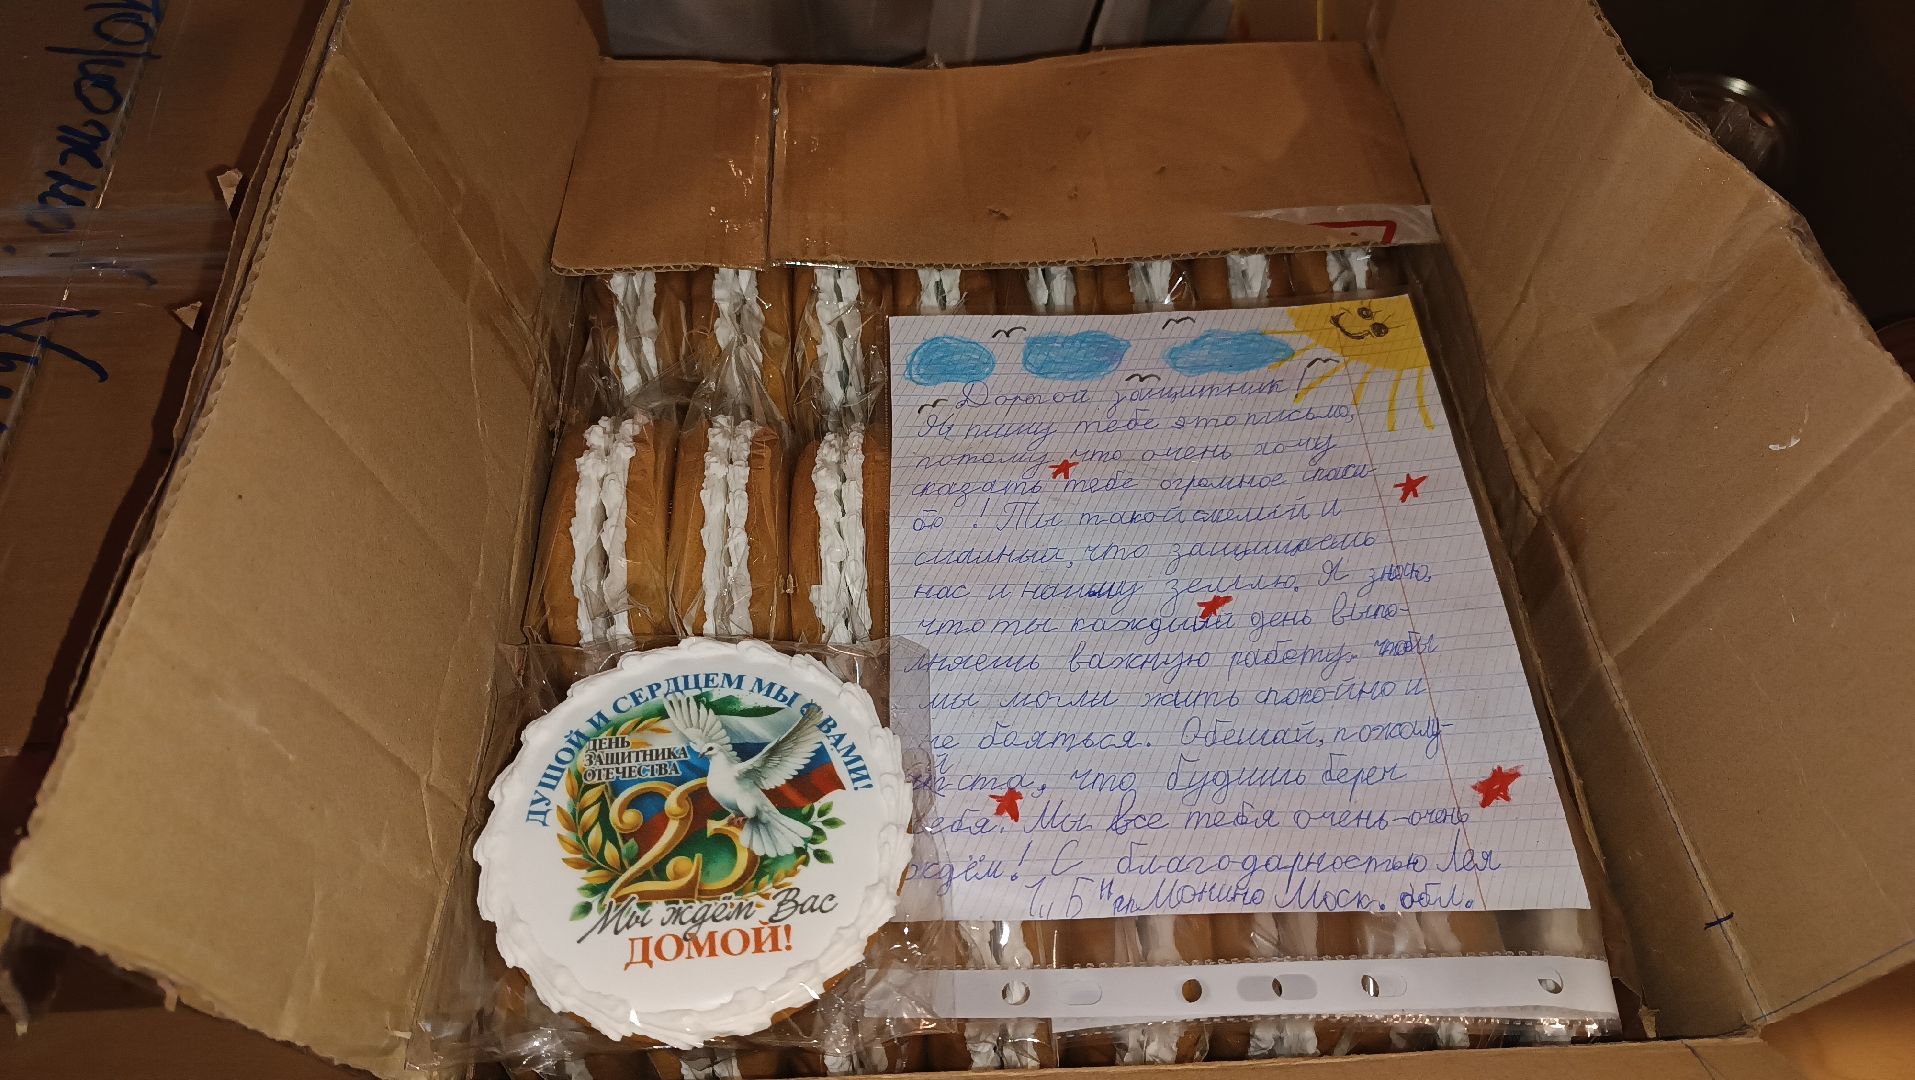 ДУШОЙ И СЕРДЦЕМ МЫ С ВАМИ!
ДЕНЬ
ЗАЩИТНИКА
ОТЕЧЕСТВА
23
Мы ждём Вас
ДОМОЙ!
Дорогой защитник!
Я пишу тебе это письмо,
потому что очень хочу
сказать тебе огромное спаси-
бо! Ты такой смелый и
сильный, что защищаешь
нас и нашу землю. Я знаю,
что ты каждый день выпо-
лняешь важную работу, чтобы
мы могли жить спокойно и
не бояться. Обещай, пожалу-
йста, что будишь береч
себя. Мы все тебя очень-очень
ждём! С благодарностью Лея
1 "Б" гп Монино Моск. обл.